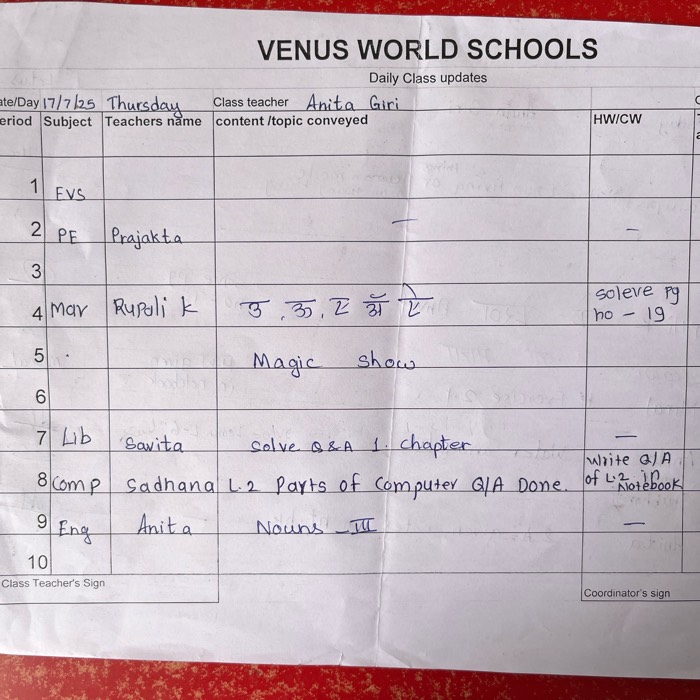 VENUS WORLD SCHOOLS
Daily Class updates
ate/Day 17/7/25 Thursday Class teacher Anita Giri
eriod Subject Teachers name content /topic conveyed HW/CW
1 EVS
2 PE Prajakta — —
3
4 Mar Rupali k उ, ऊ, ए ॲ ऐ soleve pg
no - 19
5 Magic show
6
7 Lib Savita solve Q&A 1. chapter —
8 Comp Sadhana L.2 Parts of Computer Q/A Done. write Q/A
of L.2 in
Notebook
9 Eng Anita Nouns - III —
10
Class Teacher's Sign
Coordinator's sign